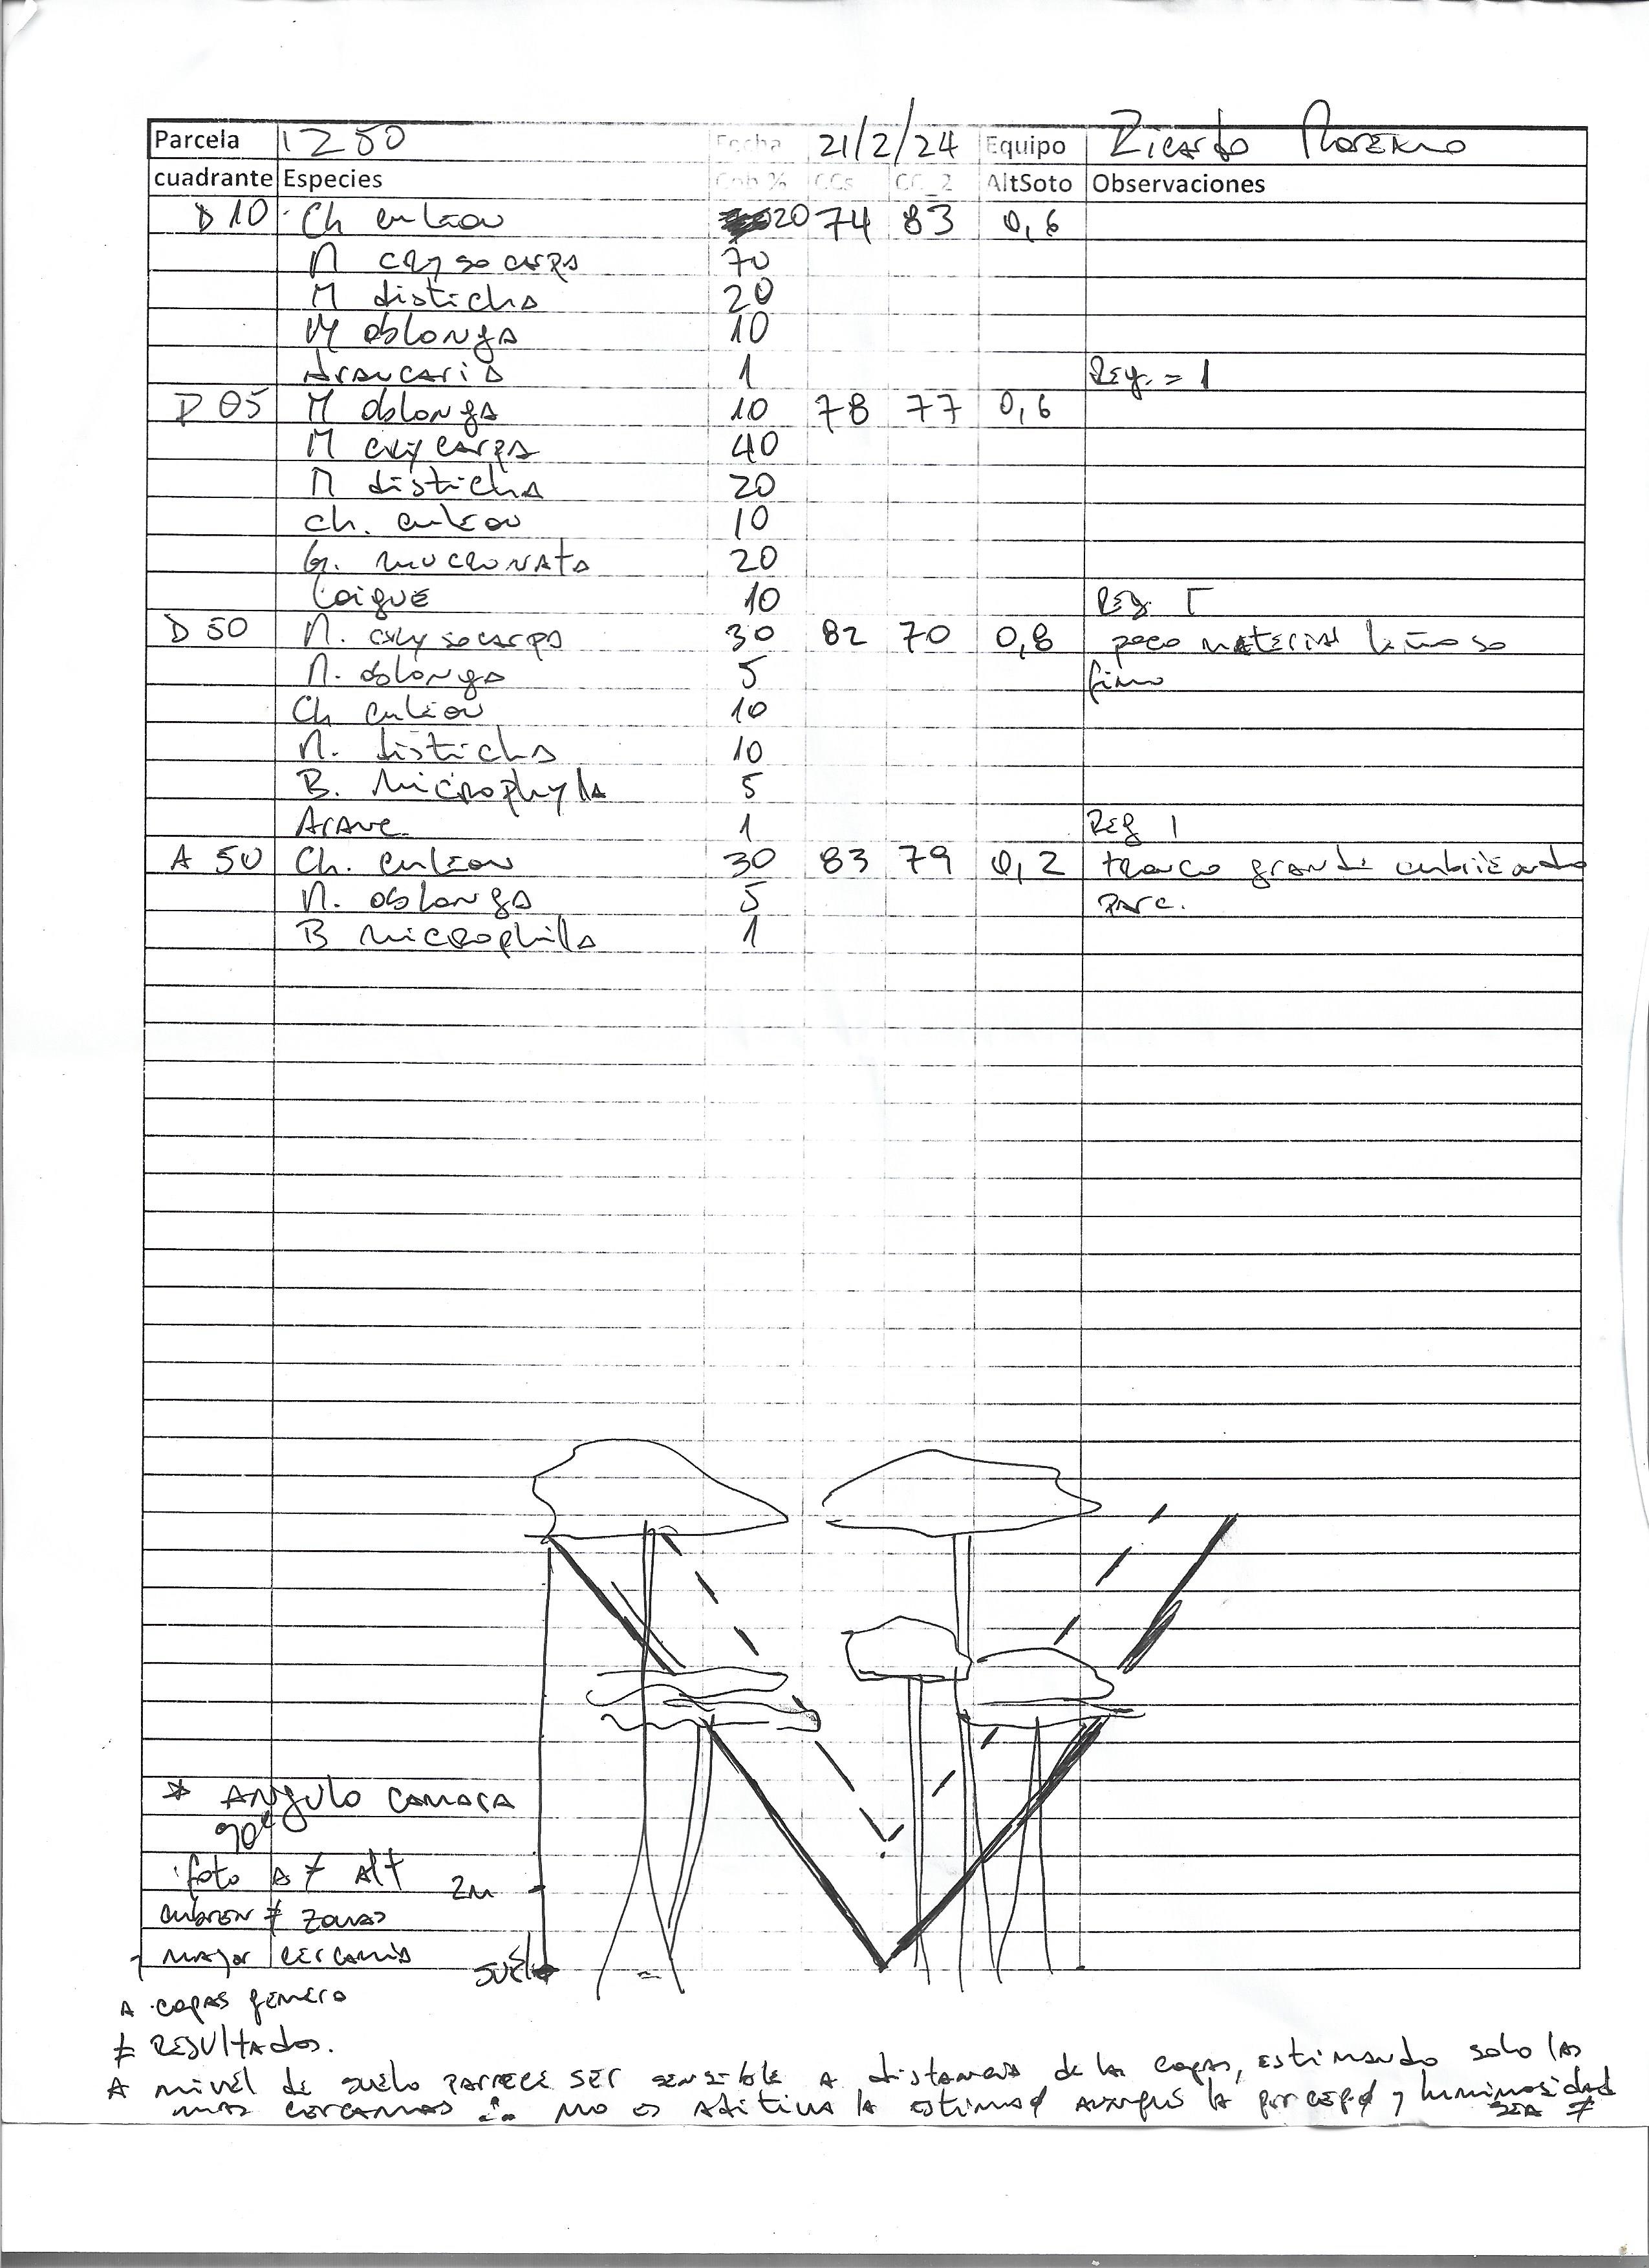 Parcela 1250 Fecha 21/2/24 Equipo Ricardo Moreno
cuadrante Especies Cob % CCs CC_2 AltSoto Observaciones
D 10 Ch culeou 20 74 83 0,6
M crysocarpa 70
M disticha 20
M oblonga 10
Araucaria 1 Reg. = 1
D 05 M oblonga 10 78 77 0,6
M crycarpa 40
M disticha 20
ch. culeou 10
G. mucronata 20
Coigue 10 Reg.
D 50 M. crysocarpa 30 82 70 0,8 poco material leñoso
M. oblonga 5 fino
Ch culeou 10
M. disticha 10
B. microphylla 5
Arauc. 1 Reg 1
A 50 Ch. culeou 30 83 79 0,2 tronco grande cubriendo
M. oblonga 5 parc.
B microphilla 1
* Angulo camara
90°
foto a ≠ alt
2m
cubren ≠ zonas
y mayor cercania
suelo
a copas genero
≠ resultados.
A nivel de suelo parece ser sensible a distancia de las copas, estimando solo las
mas cercanas ∴ no es aditiva la aunque la y luminosidad
sea ≠